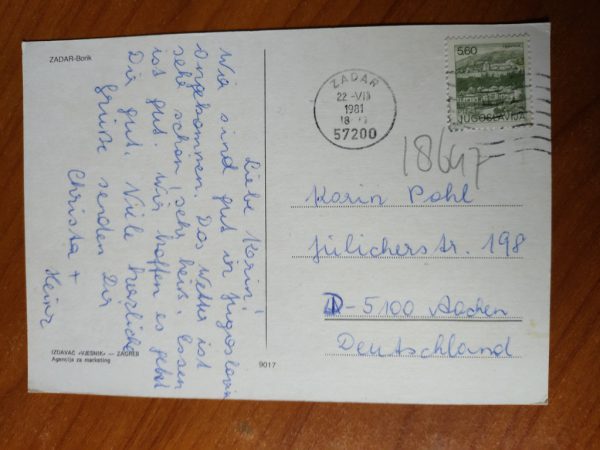 ZADAR-Borik
Liebe Karin!
Wir sind gut in Jugoslawien
angekommen. Das Wetter ist
sehr schön, sehr heiß, Essen
ist gut. Wir hoffen es geht
Dir gut. Viele herzliche
Grüße senden Dir
Christa +
Heinz
IZDAVAČ »VJESNIK« — ZAGREB
Agencija za marketing
9017
ZADAR
22 -VII
1981
18
57200
5.60
JUGOSLAVIJA
18647
Karin Pohl
Jülicherstr. 198
D-5100 Aachen
Deutschland